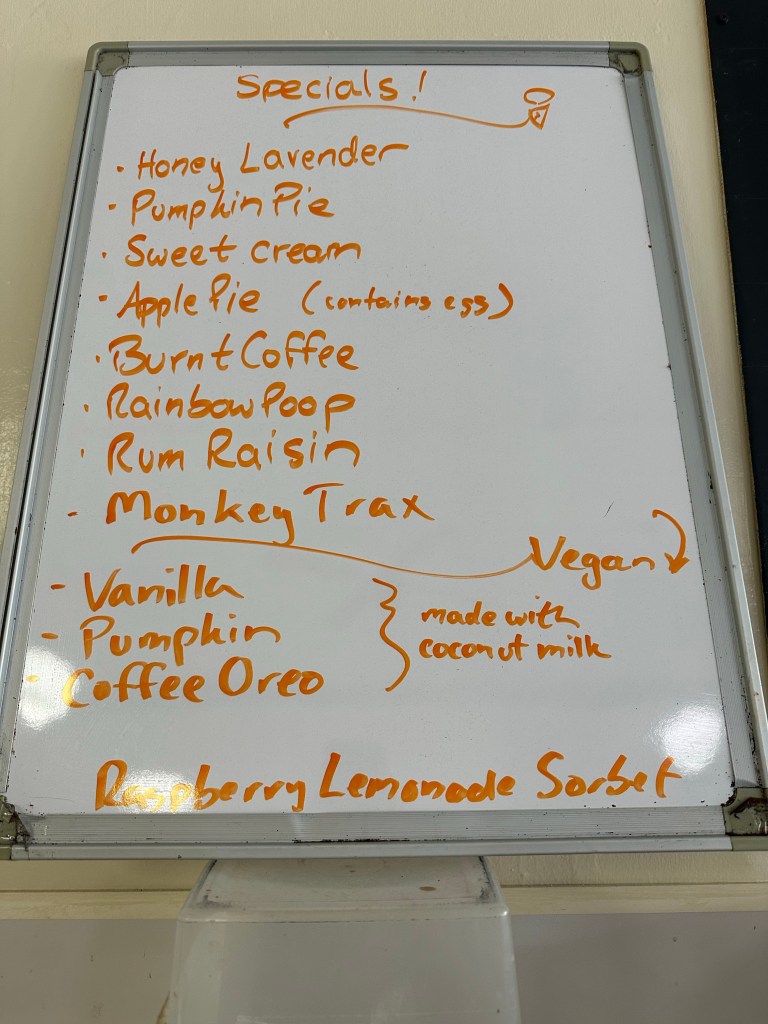 Specials!
· Honey Lavender
· Pumpkin Pie
· Sweet cream
· Apple Pie (contains egg)
· Burnt Coffee
· Rainbow Poop
· Rum Raisin
- Monkey Trax
Vegan
- Vanilla
- Pumpkin
- Coffee Oreo
made with
coconut milk
Raspberry Lemonade Sorbet